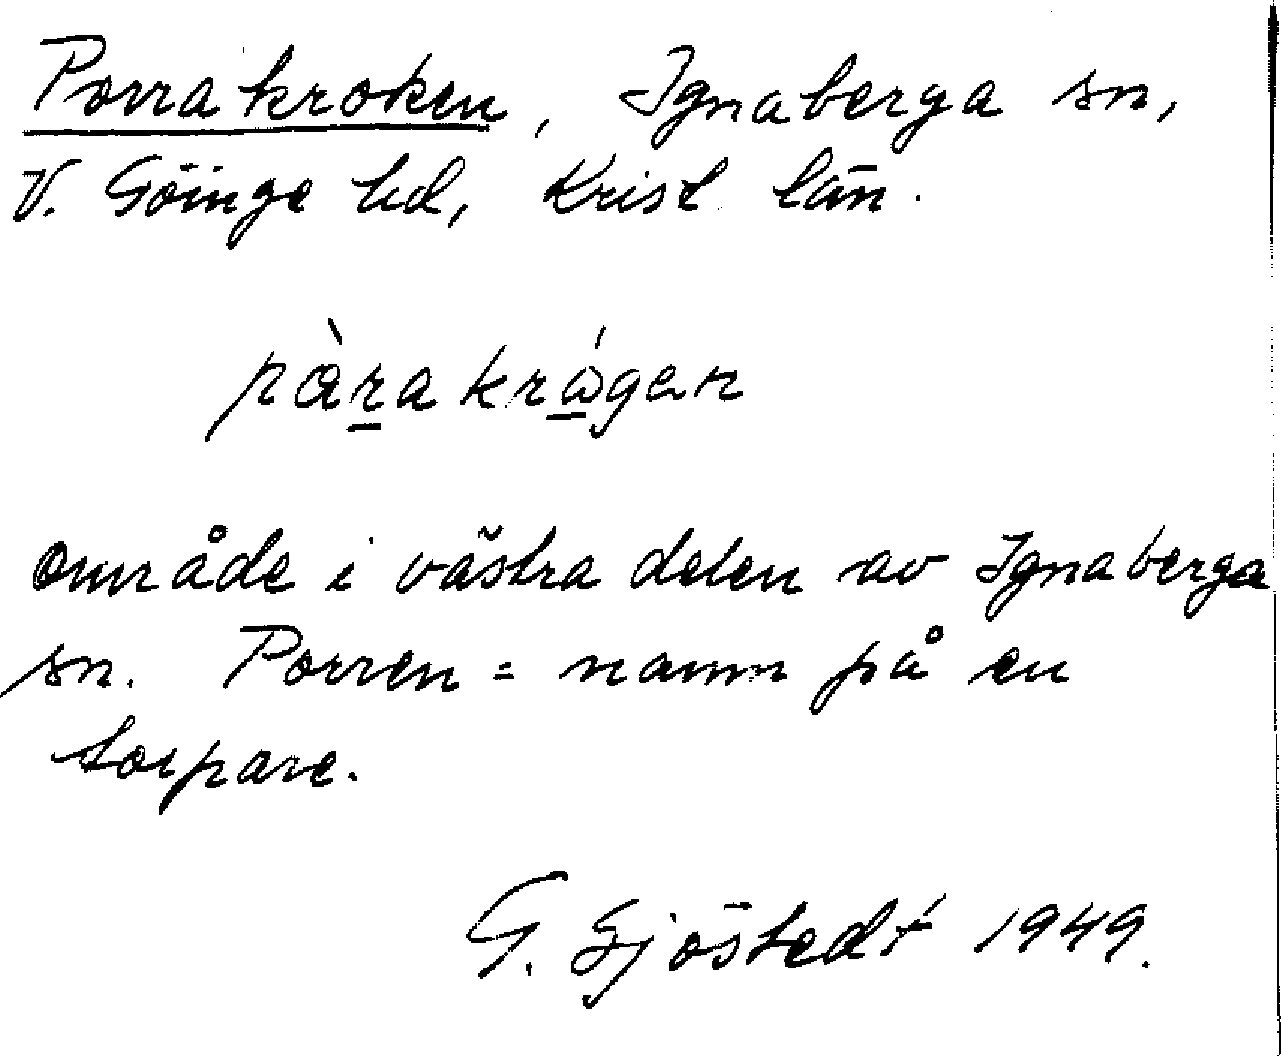 Porrakroken, Ignaberga sn,
V. Göinge hd, Krist län.
pàrakrógan
område i västra delen av Ignaberga
sn. Porren = namn på en
torpare.
G. Sjöstedt 1949.